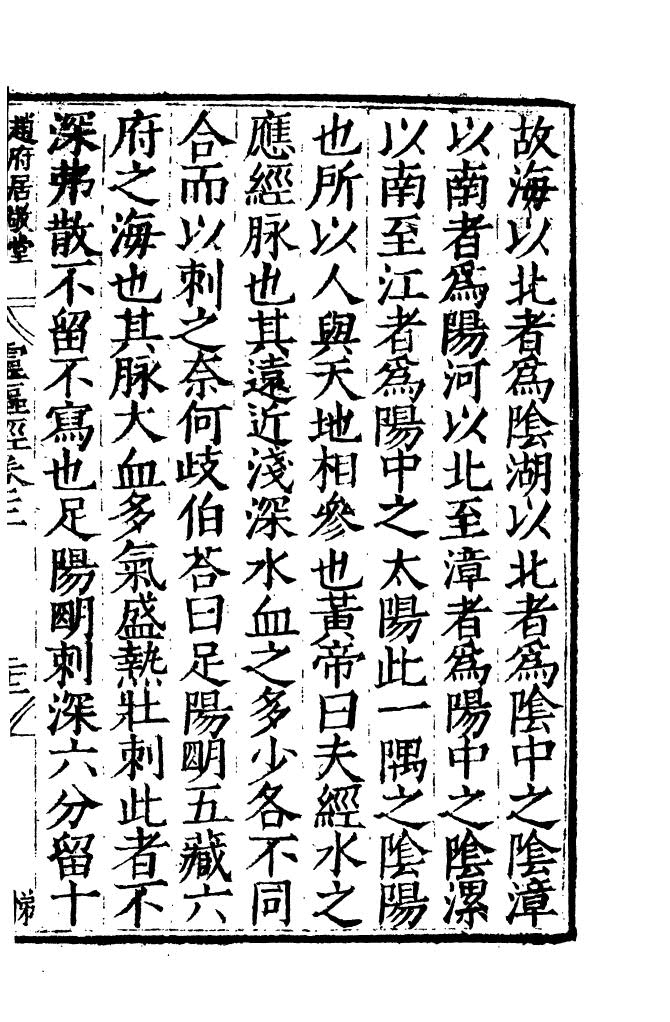 故海以北者爲陰湖以北者爲陰中之陰漳
以南者爲陽河以北至漳者爲陽中之陰漯
以南至江者爲陽中之太陽此一隅之陰陽
也所以人與天地相參也黃帝曰夫經水之
應經脉也其遠近淺深水血之多少各不同
合而以刺之奈何歧伯荅曰足陽明五藏六
府之海也其脉大血多氣盛熱壯刺此者不
深弗散不留不寫也足陽明刺深六分留十
趙府居敬堂
靈樞經卷三